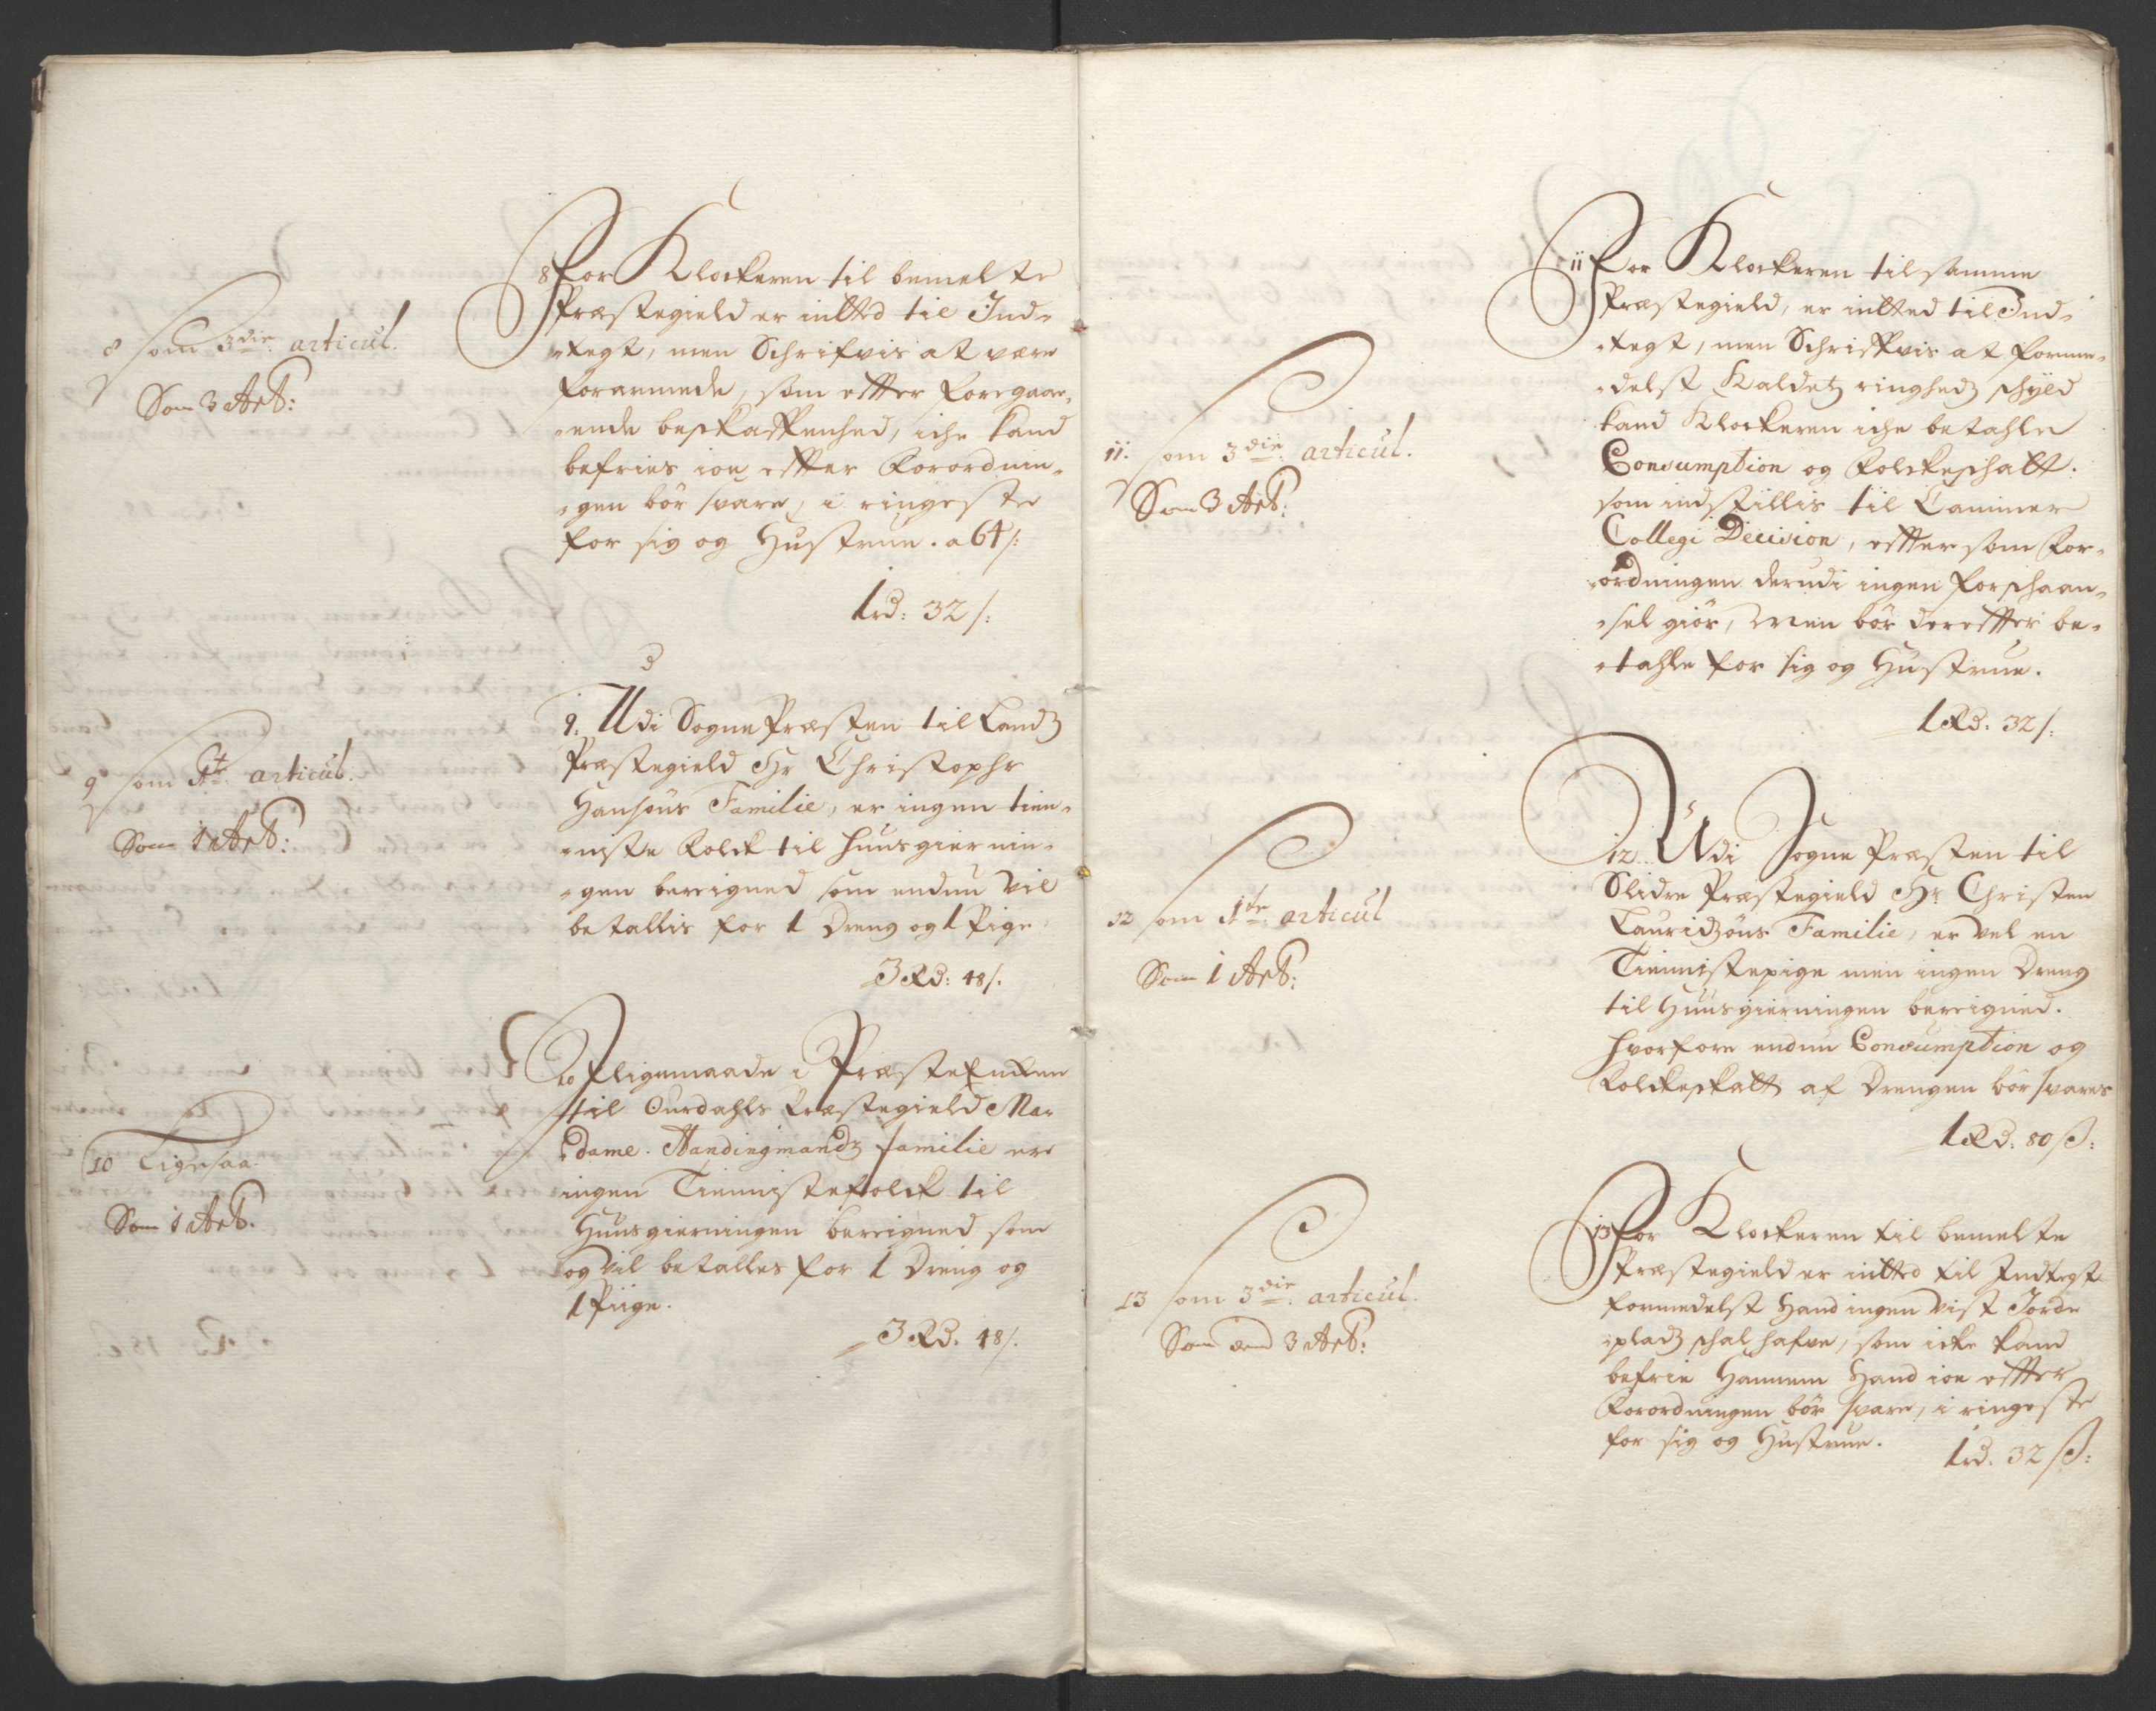 8 som 3die articul.
Som 3 Art:
9 som 1te articul.
Som 1 Art:
10 Ligesaa
Som 1 Art.
8 For Klockeren til bemelte
Præstegield er intted til Ind-
-tegt, men Schrifvis at være
forarmede, som effter foregaa-
-ende beskaffenhed, iche kand
befries ion effter Forordnin-
-gen bör svare, i ringeste
for sig og Hustrue. a 64 s:
1 rd: 32 s:
9. Udi Sogne Præsten til Landz
Præstegield Hr Christopher
Hansöns Familie, er ingen tien-
-niste Folck til huusgiernin-
-gen berigned som endnu vil
betallis for 1 Dreng og 1 Pige
3 Rd: 48 s.
10 Jligemaade i Præsteenken
til Ourdahls Præstegield Ma-
-dame. Handingmandz familie er
ingen Tiennistefolck til
Huusgierningen berigned som
og vil betalles for 1 Dreng og
1 Piige.
3 Rd. 48 s.
11. som 3die articul.
Som 3 Art:
12 som 1te articul
Som 1 Art:
13 som 3die articul.
Som den 3 Art:
11 For Klockeren til samme
Præstegield, er intted til Ind-
-tegt, men Schriffvis at forme-
-delst Kaldetz ringhedz schyld
kand Klockeren iche betahle
Consumption og Folckeschatt.
som indstillis til Cammer
Collegi Decision, effter som For-
-ordningen derudi ingen forschaan-
-sel giör, Men bör dereffter be-
-tahle for sig og Hustrue.
1 Rd: 32 s:
12. Udi Sogne Præsten til
Slidre Præstegield Hr. Christen
Lauridzöns Familie, er vel en
Tiennistepige men ingen Dreng
til Huusgierningen berigned.
hvorfore endnu Consumption og
Folckeskatt af Drengen bör svares
1 Rd: 80 s:
13 For Klockeren til bemelte
Præstegield er intted til Indtegt
formedelst Hand ingen vist Jorde
-pladz schal hafve, som icke kand
befrie Hannem Hand ion effter
Forordningen bör svare, i ringeste
for sig og Hustrue.
1 rd. 32 s: